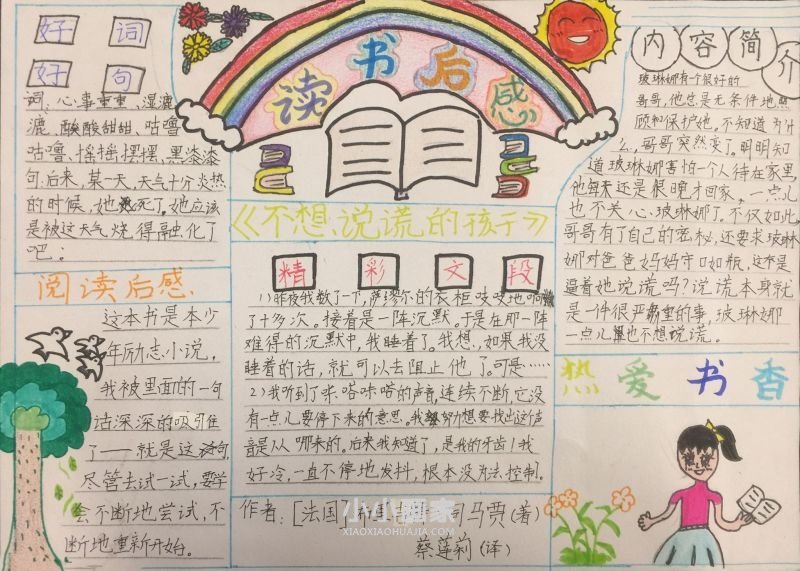 好词
好句
词:心事重重、湿漉
漉、酸酸甜甜、咕噜
咕噜、摇摇摆摆、黑漆漆
句:后来,某一天,天气十分炎热
的时候,她死了。她应该
是被这天气烧得融化了
吧!
阅读后感
这本书是本少
年励志小说,
我被里面的一句
话深深的吸引住
了——就是这句
尽管去试一试,要学
会不断地尝试,不
断地重新开始。
读书后感
《不想说谎的孩子》
精彩文段
1)昨夜我数了一下,萨缪尔的衣柜吱吱地响
了十多次。接着是一阵沉默。于是在那一阵
难得的沉默中,我睡着了。我想,如果我没
睡着的话,就可以去阻止他了。可是……
2)我听到了咔嗒咔嗒的声音,连续不断,它没
有一点儿要停下来的意思。我努力想要找出这个声
音是从哪来的。后来我知道了,是我的牙齿!我
好冷,一直不停地发抖,根本没办法控制。
作者:[法国]司马贾(著)
蔡莲莉(译)
内容简介
玻琳娜有个很好的
哥哥,他总是无条件地照
顾和保护她,不知道为什
么,哥哥突然变了。明明知
道玻琳娜害怕一个人待在家里,
他每天还是很晚才回家,一点儿
也不关心玻琳娜了。不仅如此,
哥哥有了自己的密秘,还要求玻琳
娜对爸爸妈妈守口如瓶,这不是
逼着她说谎吗?说谎本身就
是一件很严重的事,玻琳娜
一点儿也不想说谎。
热爱书香
小小画家
XIAOXIAOHUAJIA.COM